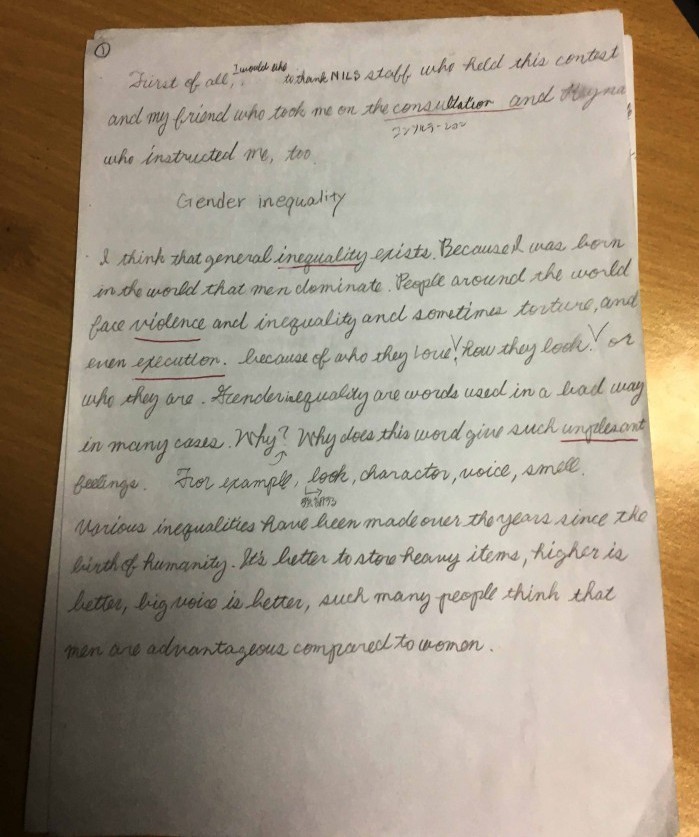 ①
First of all, I would like to thank NILS staff who held this contest
and my friend who took me on the consultation and
コンソルテーション
who instructed me, too.
Gender inequality
I think that general inequality exists. Because I was born
in the world that men dominate. People around the world
face violence and inequality and sometimes torture, and
even execution. because of who they love! how they look! or
who they are. Gender inequality are words used in a bad way
in many cases. Why? Why does this word give such unplesant
feelings. For example, look, charactor, voice, smell.
Various inequalities have been made over the years since the
birth of humanity. It's better to store heavy items, higher is
better, big voice is better, such many people think that
men are advantageous compared to women.